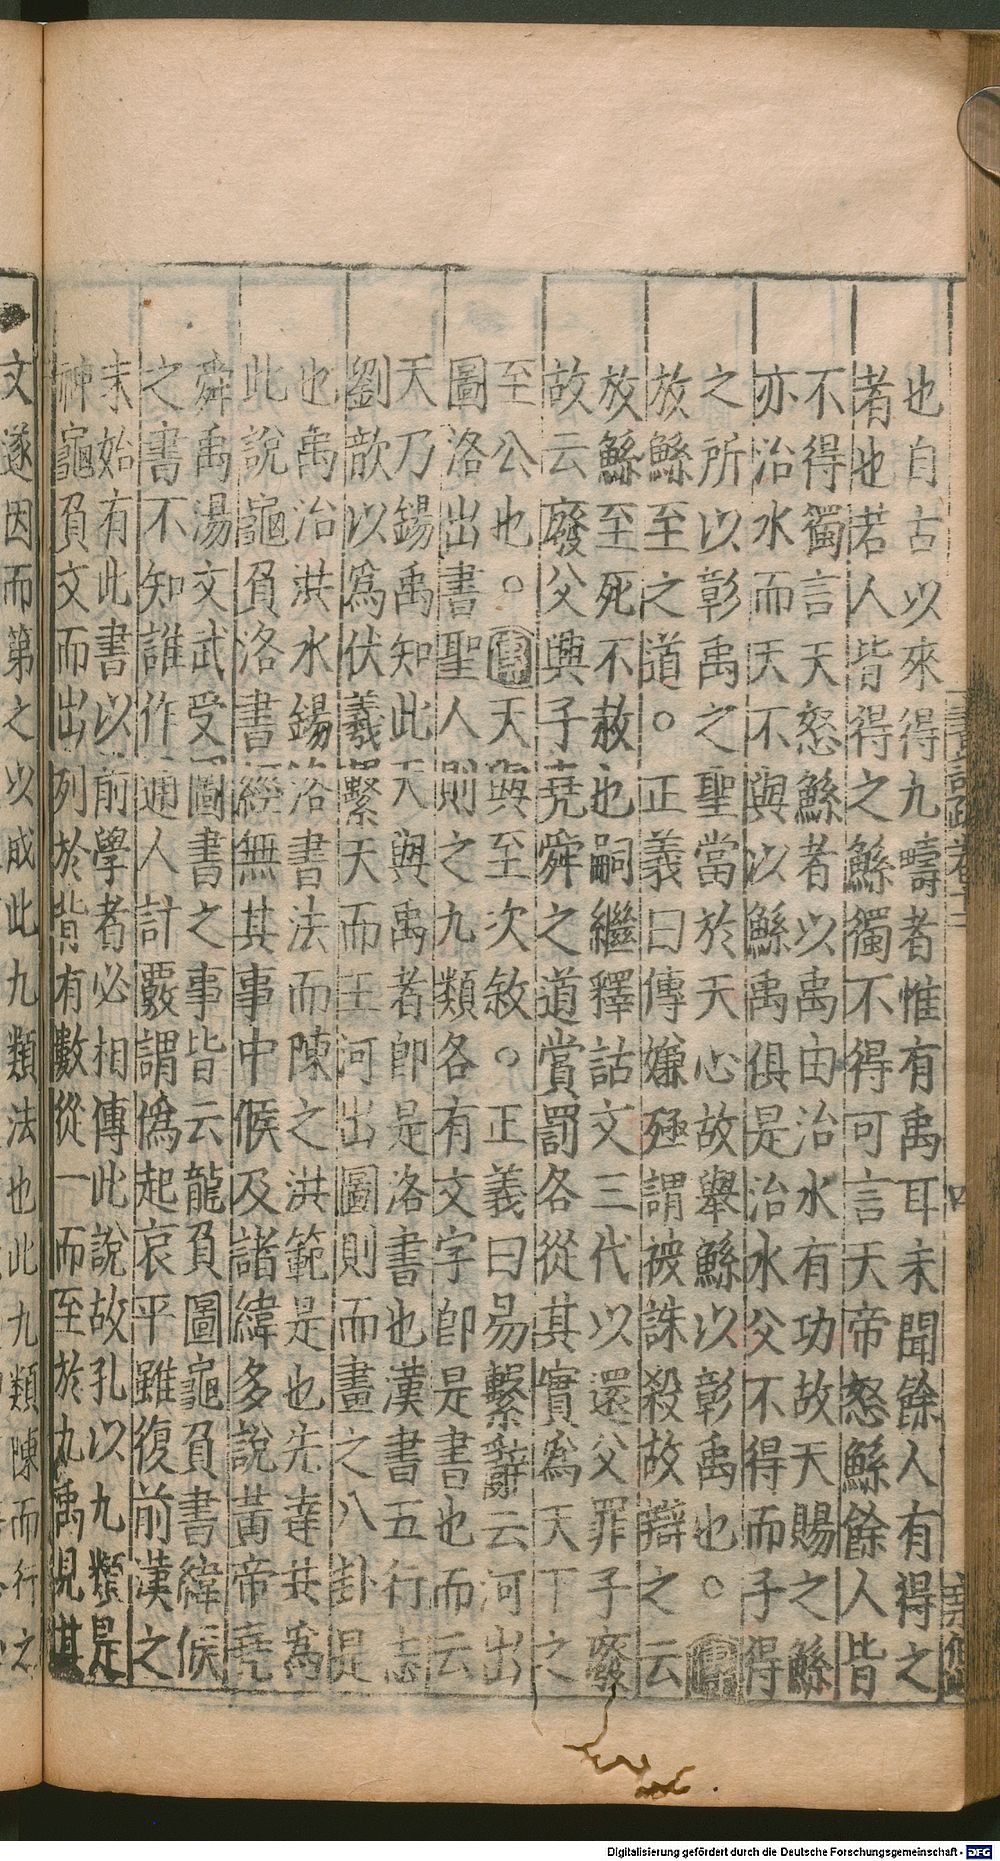 也自古以來得九疇者惟有禹耳未聞餘人有得之
者也若人皆得之鯀獨不得可言天帝怒鯀餘人皆
不得獨言天怒鯀者以禹由治水有功故天賜之鯀
亦治水而天不與以鯀禹俱是治水父不得而子得
之所以彰禹之聖當於天心故舉鯀以彰禹也。傳
放鯀至之道。正義曰傳嫌殛謂被誅殺故辯之云
放鯀至死不赦也嗣繼釋詁文三代以還父罪子廢
故云廢父興子堯舜之道賞罰各從其實為天下之
至公也。傳天與至次敘。正義曰易繫辭云河出
圖洛出書聖人則之九類各有文字即是書也而云
天乃錫禹知此天與禹者即是洛書也漢書五行志
劉歆以為伏羲繫天而王河出圖則而畫之八卦是
也禹治洪水錫洛書法而陳之洪範是也先達共為
此說龜負洛書經無其事中候及諸緯多說黃帝堯
舜禹湯文武受圖書之事皆云龍負圖龜負書緯候
之書不知誰作通人討覈謂偽起哀平雖復前漢之
末始有此書以前學者必相傳此說故孔以九類是
神龜負文而出列於背有數從一而至於九禹見其
文遂因而第之以成此九類法也此九類陳而行之
Digitalisierung gefördert durch die Deutsche Forschungsgemeinschaft - DFG